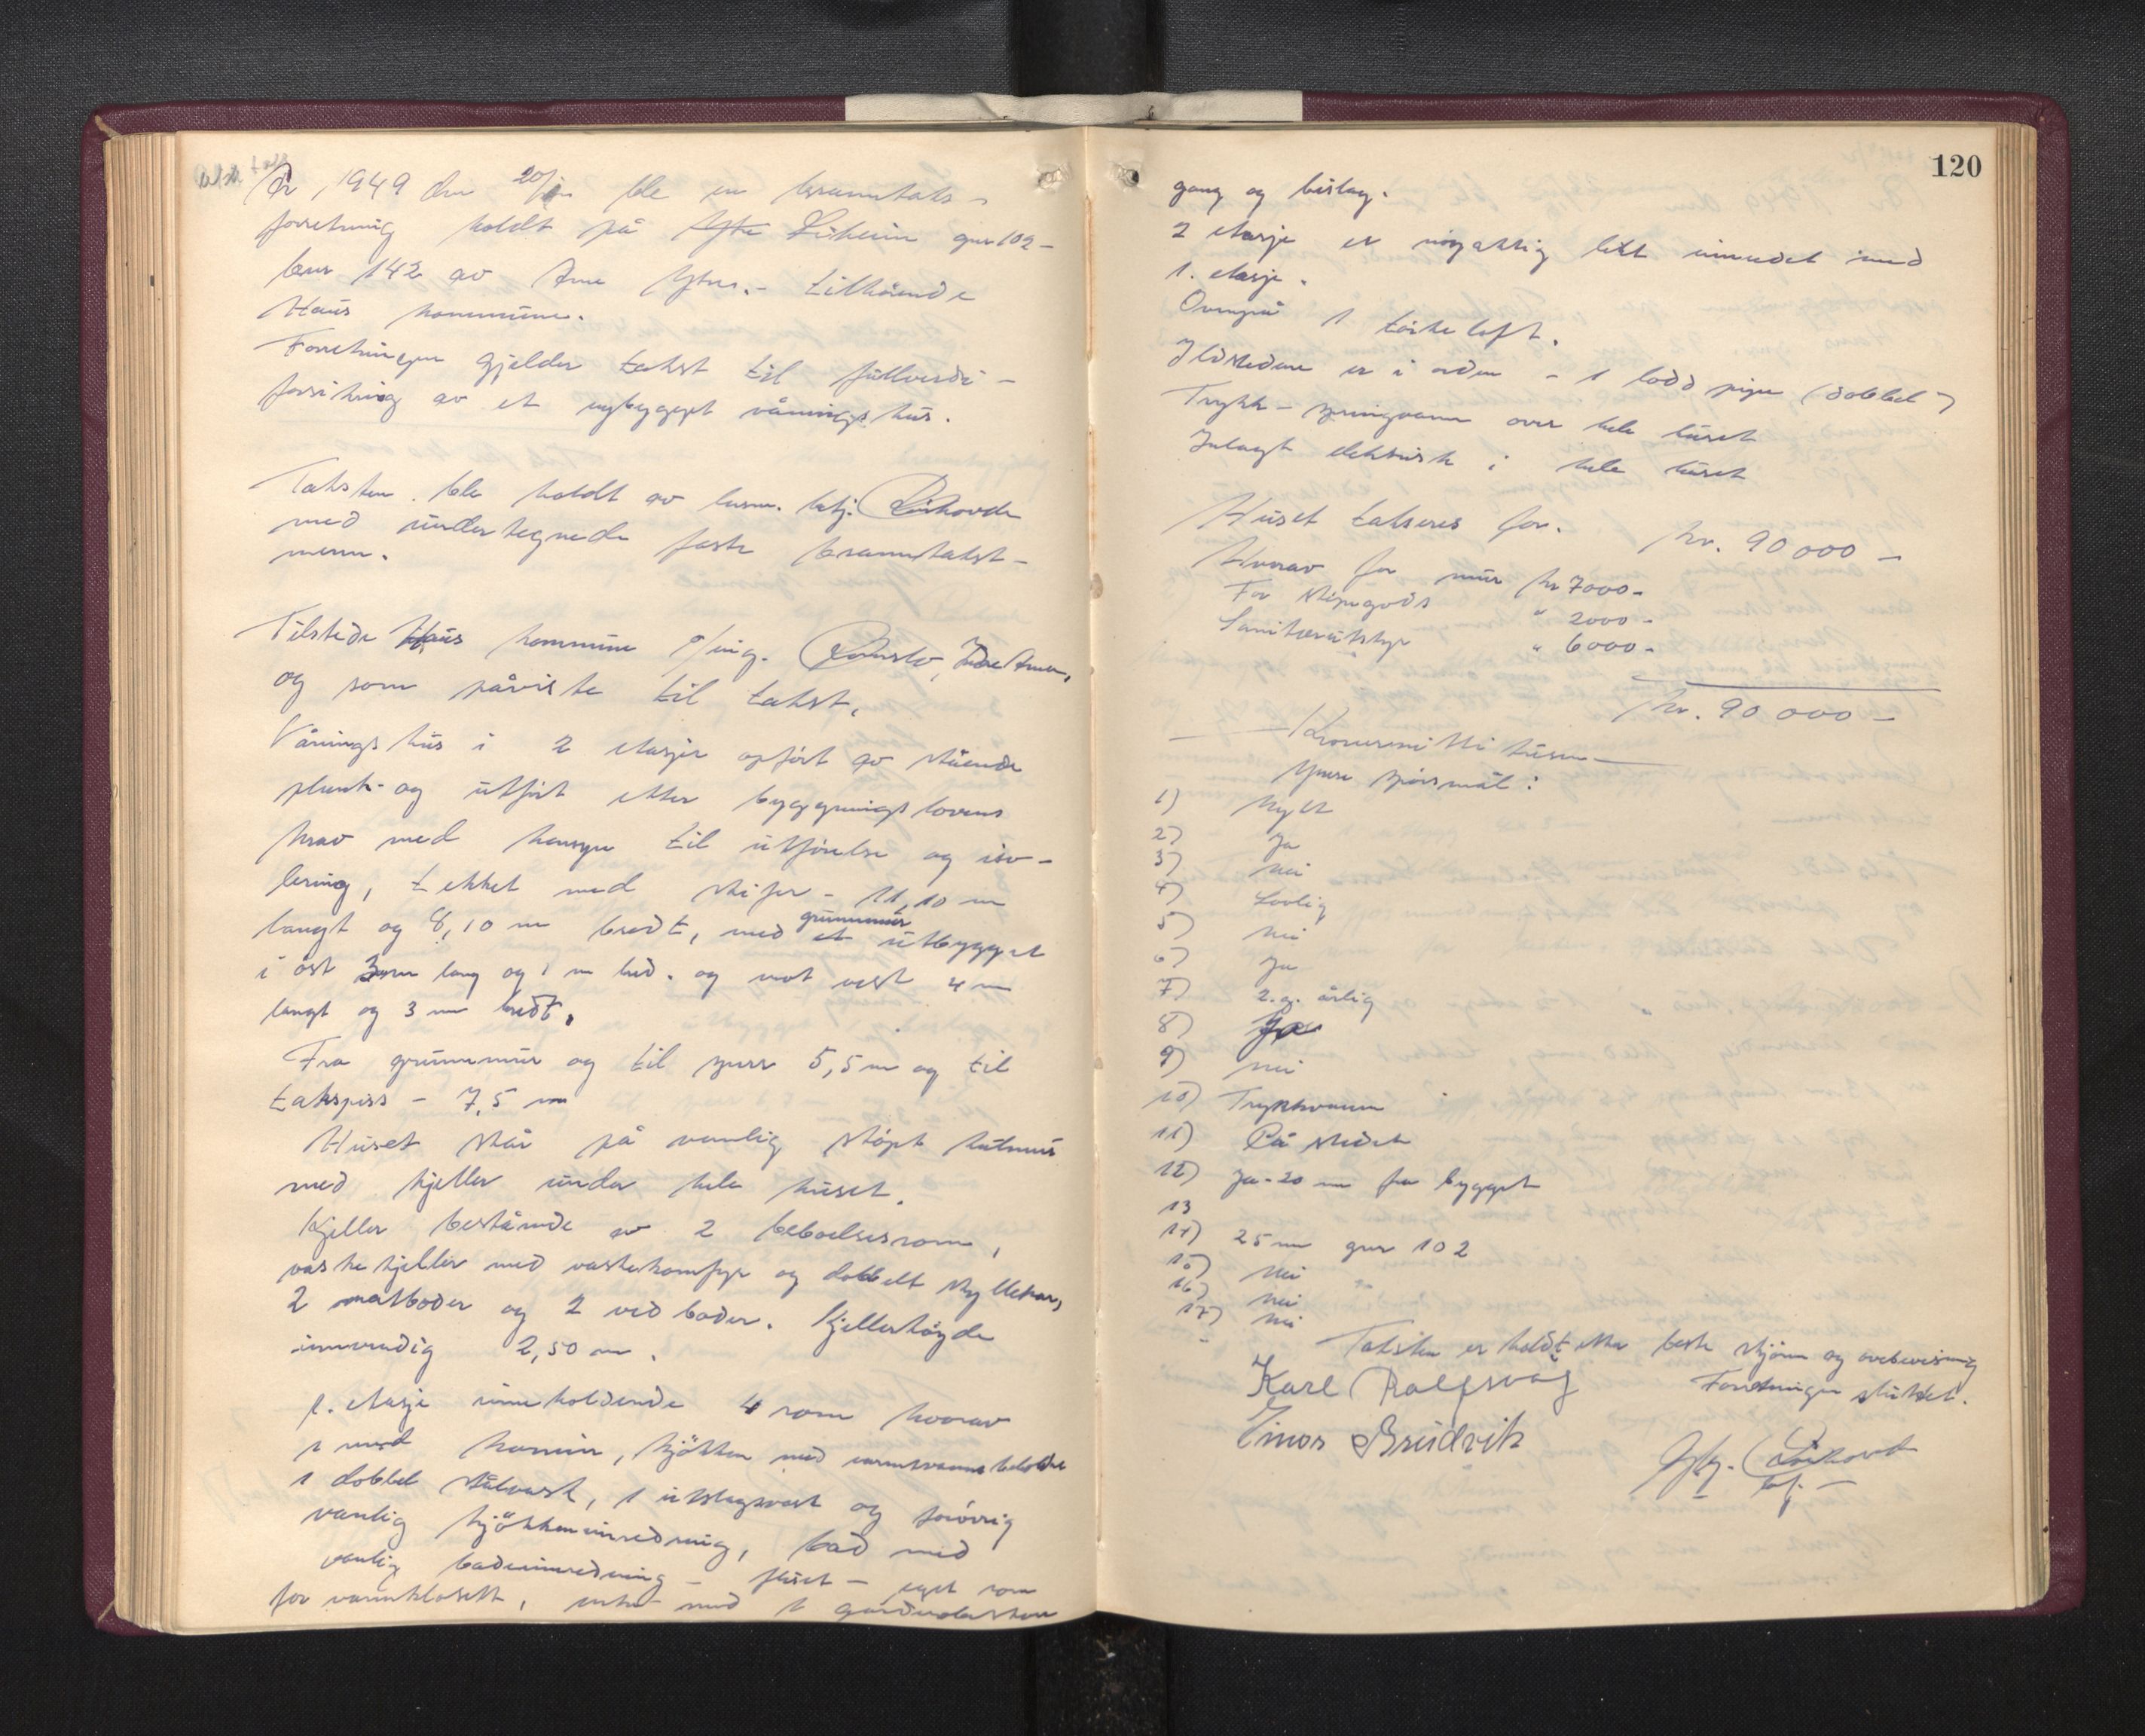 År, 1949 den 20/ ble en branntakst-
forretning holdt på Ytre Liheim gnr 102-
bnr 142 av Arne Ytre.- tilhørende
Haus kommune.
Forretningen gjelder takst til fullverdi-
forsikring av et nybygget våningshus.
Taksten ble holdt av lensm. betj.
med undertegnede faste branntakst-
menn.
Tilstede Haus kommune v/ing. Indre Arna,
og som påviste til takst.
Våningshus i 2 etasjer opført av stående
plank- og utført etter bygningslovens
krav med hensyn til utførelse og iso-
lering, tekket med skifer - 11,10 m
langt og 8,10 m bredt, med et grunnmur utbygget
i øst 3 m lang og 1 m bred. og mot vest 4 m
langt og 3 m bredt.
Fra grunnmur og til gurr 5,5 m og til
takspiss - 7,5 m
Huset står på vanlig støpt kultmur
med kjeller under hele huset.
Kjeller bestående av 2 beboelsesrom,
vaskekjeller med vaskekomfyr og dobbelt skyllekar,
2 matboder og 2 vedboder. Kjellerhøyde
innvendig 2,50 m.
1. etasje inneholdende 4 rom hvorav
1 med kamin, kjøkken med varmtvannsbeholder
1 dobbel stålvask, 1 utslagsvask og forøvrig
vanlig kjøkkeninnredning, bad med
vanlig badeinnredning - fliset - eget rom
for vannklosett, entre med 1 garderobeskap
120
gang og bislag.
2 etasje er nøyaktig likt innredet med
1. etasje.
Ovenpå 1 tørkeloft.
Ildstedene er i orden - 1 lødd pipe (dobbel)
Trykk-springvann over hele huset
Innlagt elektrisk i hele huset
Huset takseres for. kr. 90 000 -
Hvorav for mur kr 7000-
For støpegods " 2000-
Sanitærutstyr " 6000-
kr. 90 000 -
Kronernitti tusen
Ymse spørsmål:
1) Nytt
2) Ja
3) Nei
4) Lovlig
5) Nei
6) Ja
7) 2.g. årlig
8) Ja
9) Nei
10) Trykkvann
11) På stedet
12) Ja - 20 m fra bygget
13
14) 25 m gnr 102
15) Nei
16) Nei
17) Nei
Taksten er holdt etter beste skjønn og overbevisning
Forretningen sluttet.
Karl Rolfsvåg
Einar Breidvik
btj.